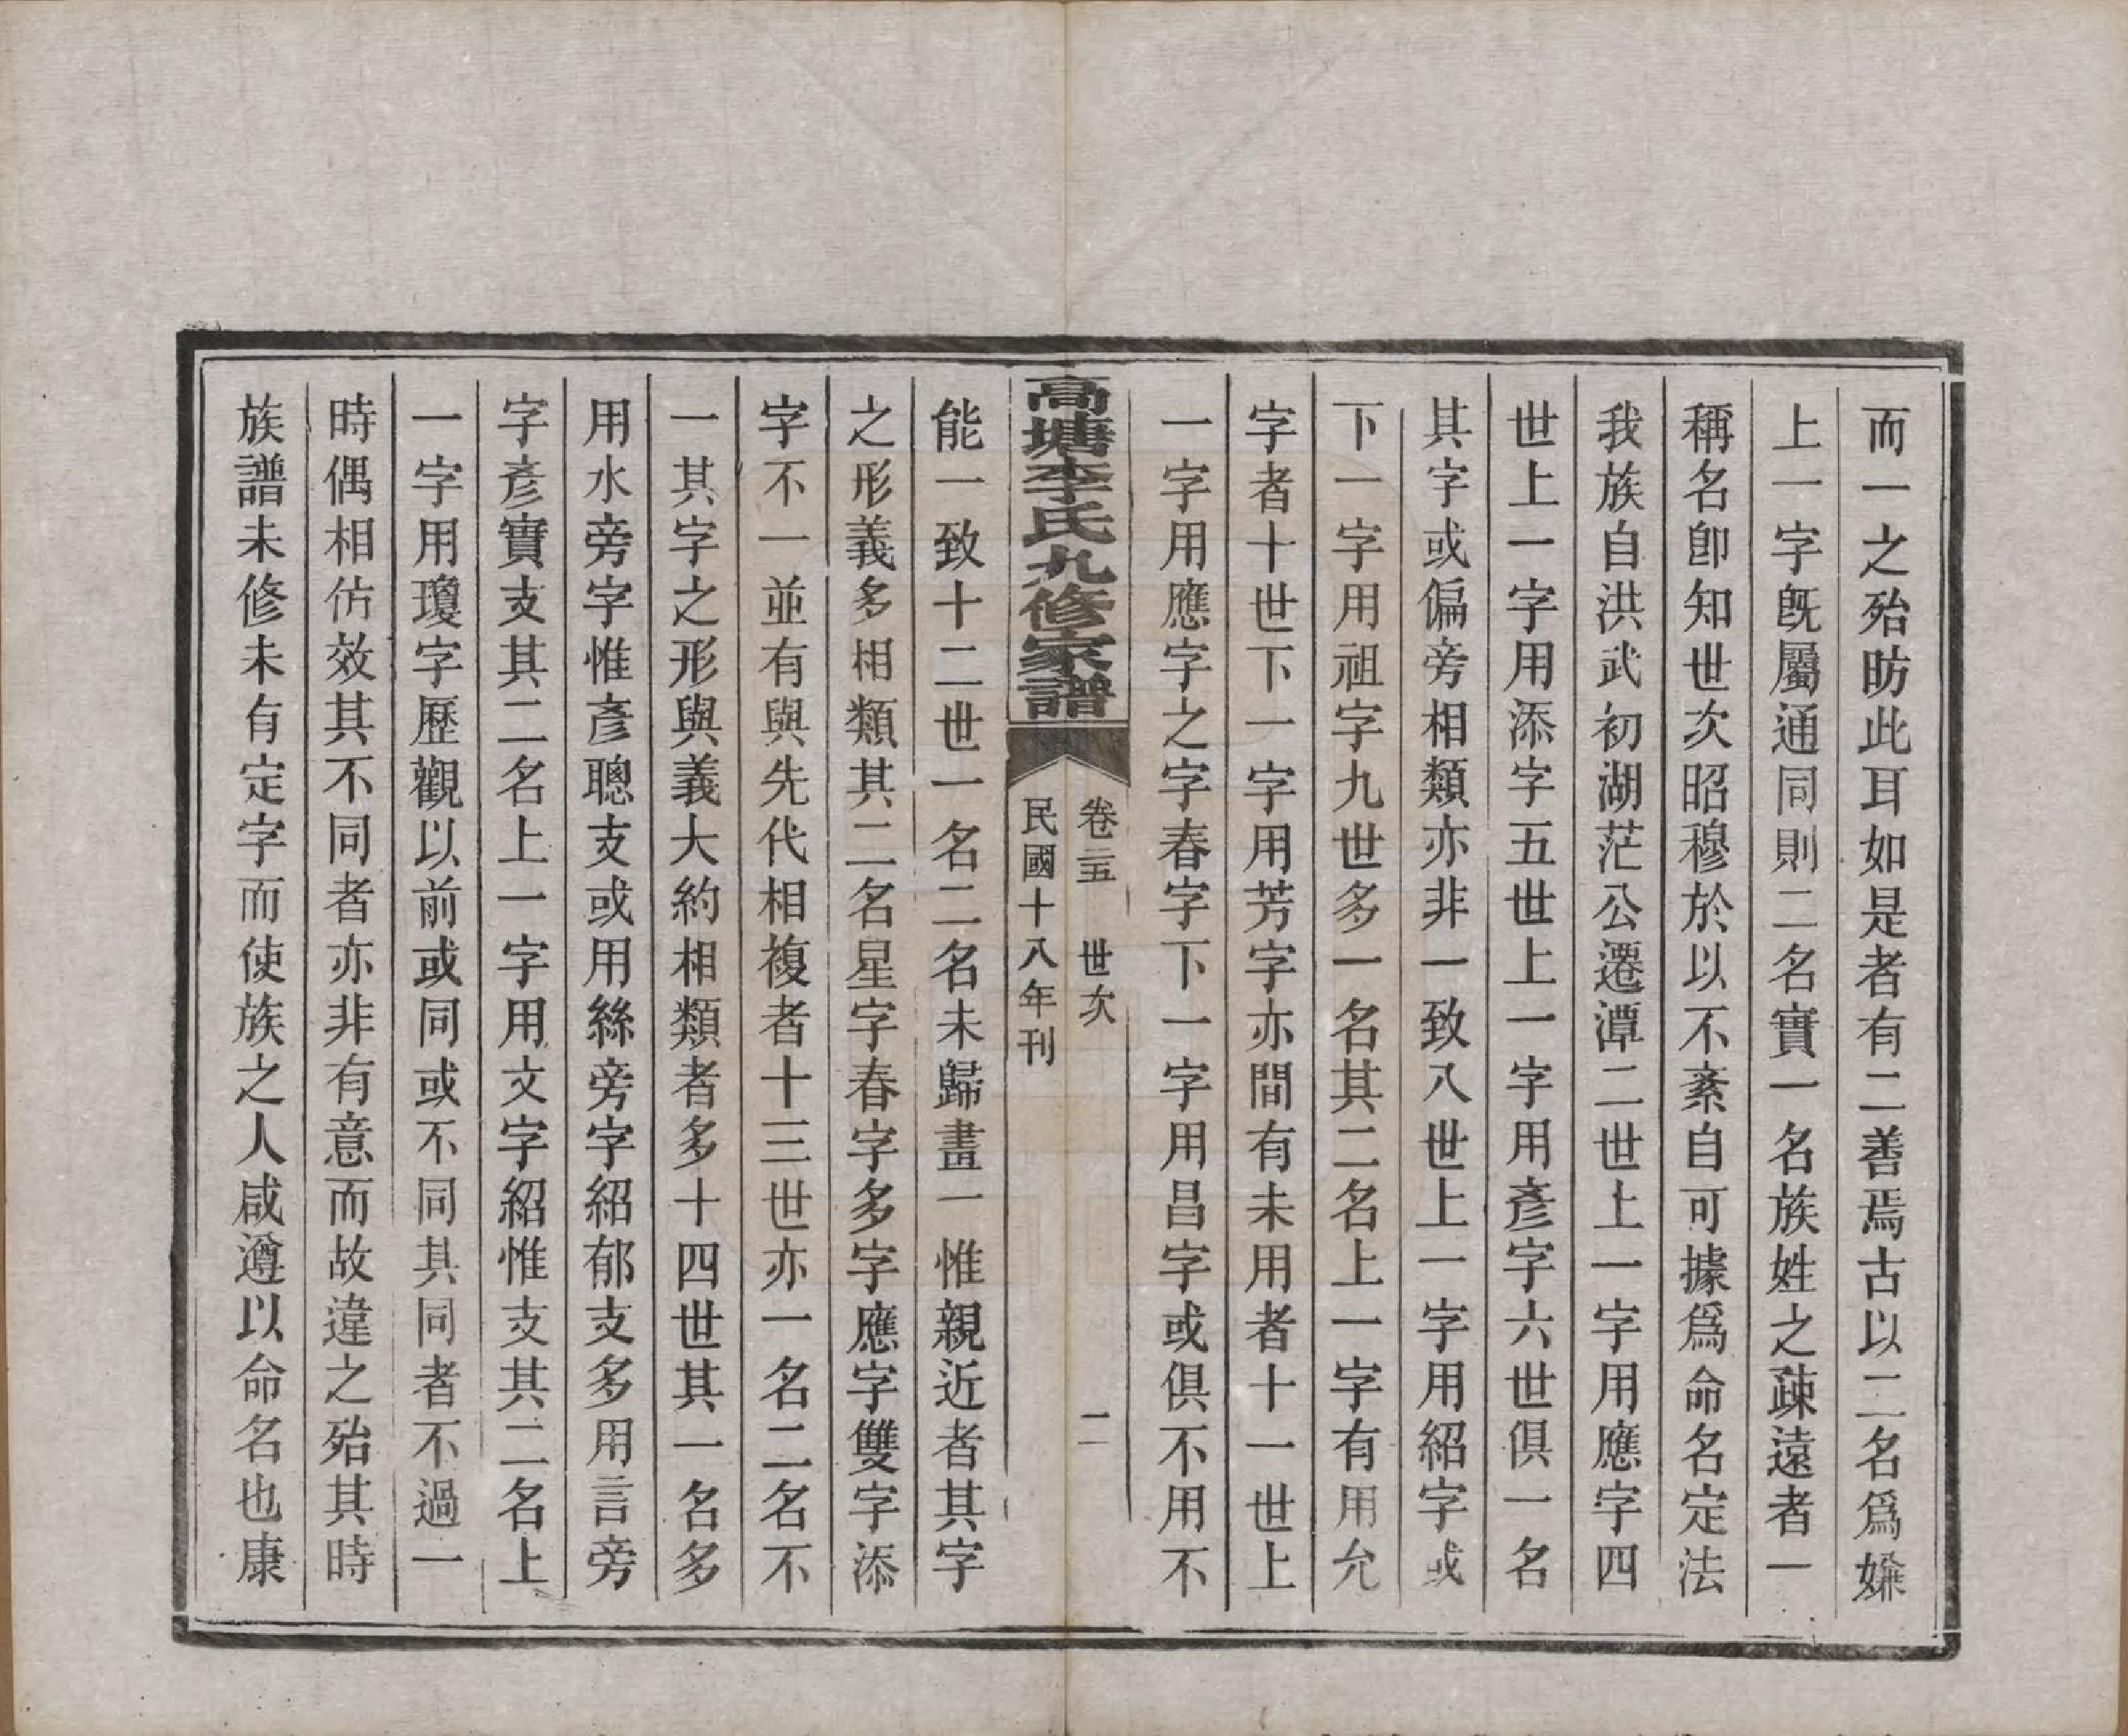 而一之殆昉此耳如是者有二善焉古以二名爲嫌
上一字旣屬通同則二名實一名族姓之疎遠者一
稱名卽知世次昭穆於以不紊自可據爲命名定法
我族自洪武初湖茫公遷潭二世上一字用應字四
世上一字用添字五世上一字用彥字六世俱一名
其字或偏旁相類亦非一致八世上一字用紹字或
下一字用祖字九世多一名其二名上一字有用允
字者十世下一字用芳字亦間有未用者十一世上
一字用應字之字春字下一字用昌字或俱不用不
高塘李氏九修家譜
卷三五 世次 二
民國十八年刊
能一致十二世一名二名未歸畫一惟親近者其字
之形義多相類其二名星字春字多字應字雙字添
字不一並有與先代相複者十三世亦一名二名不
一其字之形與義大約相類者多十四世其一名多
用水旁字惟彥聰支或用絲旁字紹郁支多用言旁
字彥實支其二名上一字用文字紹惟支其二名上
一字用瓊字歷觀以前或同或不同其同者不過一
時偶相仿效其不同者亦非有意而故違之殆其時
族譜未修未有定字而使族之人咸遵以命名也康